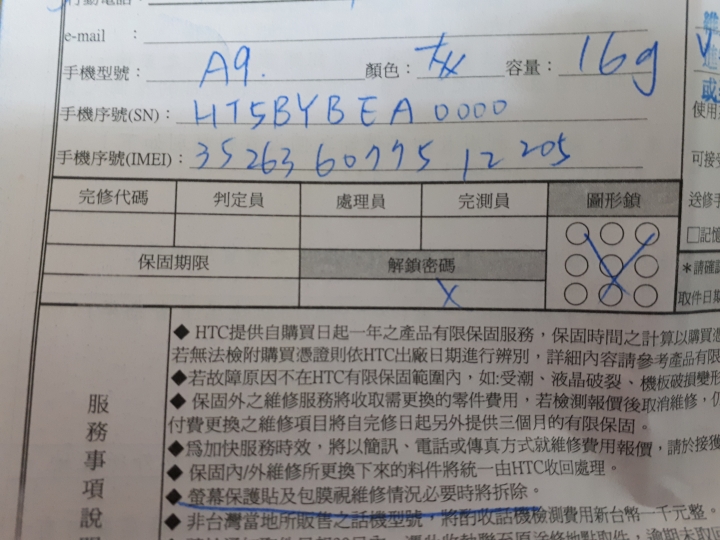 行動電話：
e-mail ：
手機型號： A9. 顏色： 容量： 16g
手機序號(SN)： HT5BYBEA0000
手機序號(IMEI)： 352636077512205
完修代碼 判定員 處理員 完測員 圖形鎖
保固期限 解鎖密碼
X
使用
可接受
送修手
□記憶
＊請確認
取件日期
服務事項說
◆ HTC提供自購買日起一年之產品有限保固服務，保固時間之計算以購買憑
若無法檢附購買憑證則依HTC出廠日期進行辨別，詳細內容請參考產品有限
◆若故障原因不在HTC有限保固範圍內，如:受潮、液晶破裂、機板破損變形
◆ 保固外之維修服務將收取需更換的零件費用，若檢測報價後取消維修，仍
付費更換之維修項目將自完修日起另外提供三個月的有限保固。
◆為加快服務時效，將以簡訊、電話或傳真方式就維修費用報價，請於接獲
◆ 保固內/外維修所更換下來的料件將統一由HTC收回處理。
◆ 螢幕保護貼及包膜視維修情況必要時將拆除。
◆ 非台灣當地所販售之話機型號，將酌收話機檢測費用新台幣一千元整。